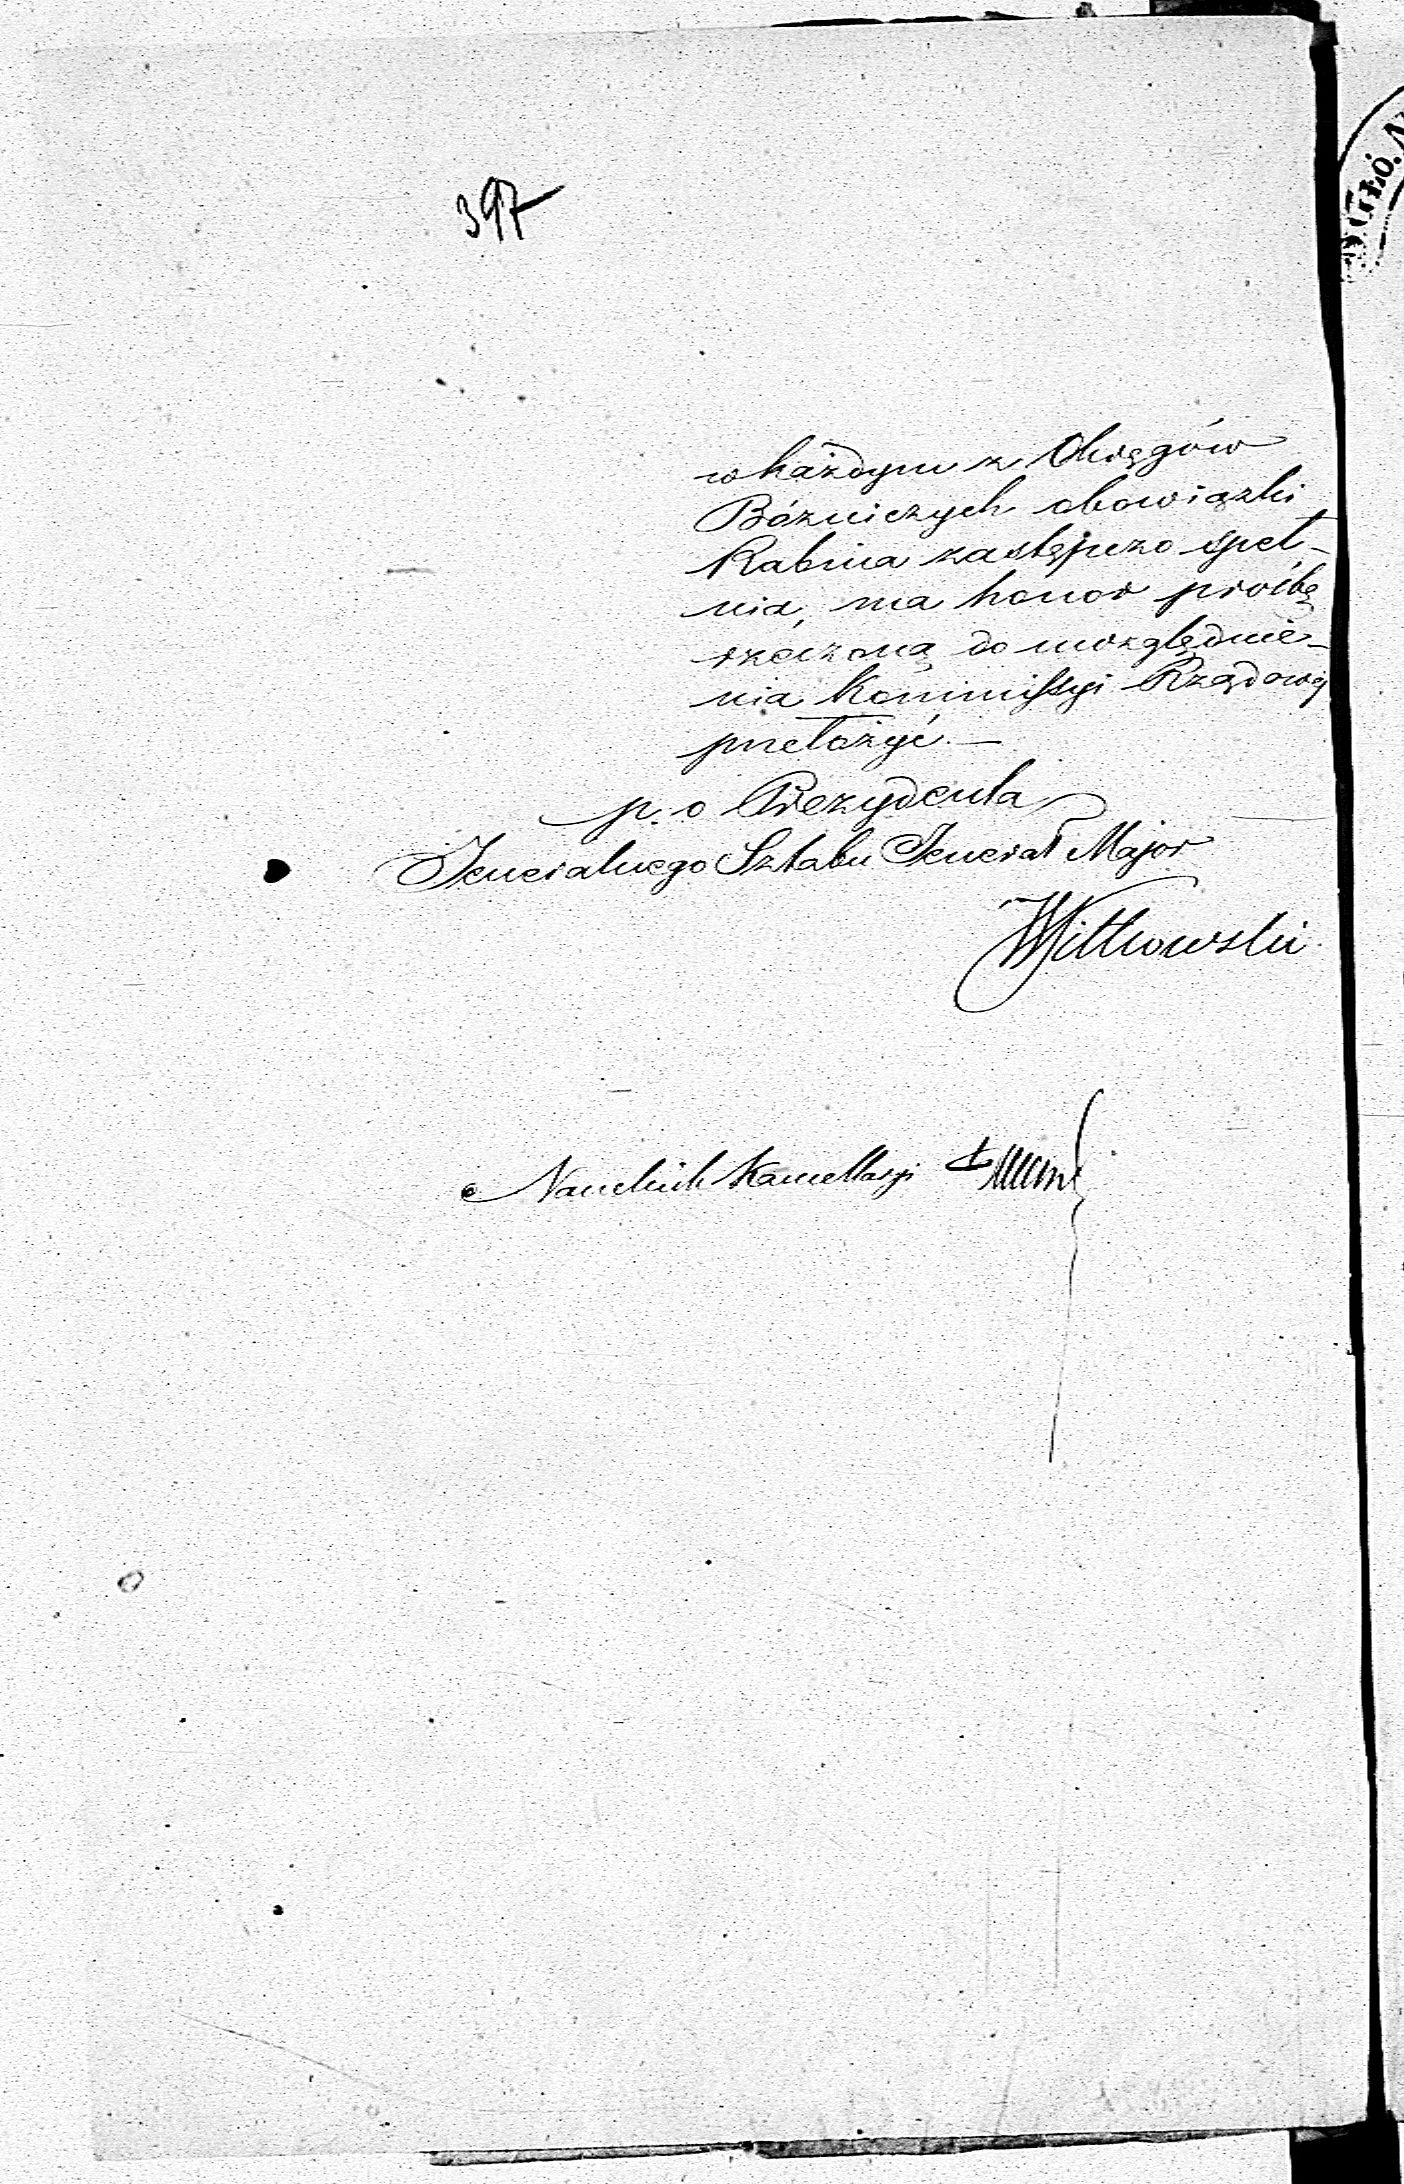 397
w każdym z Okręgów
Bóżniczych obowiązki
Rabina zastępczo speł-
nia, ma honor prośbę
rzeczoną do uwzględnie-
nia Kommissyi Rządowej
przełożyć.—
p. o Prezydenta
Jeneralnego Sztabu Jenerał Major
Witkowski
Naczelnik Kancellaryi